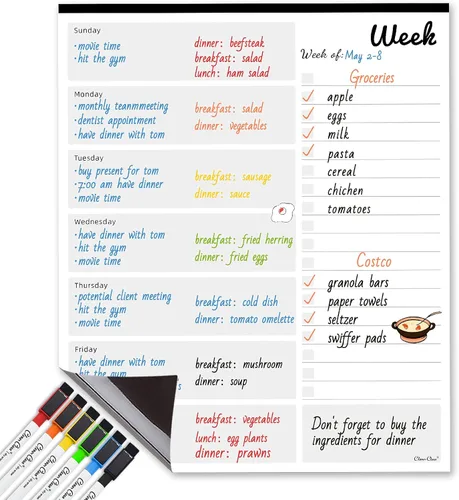 Week
Week of: May 2-8
Sunday
·movie time
·hit the gym
dinner: beefsteak
breakfast: salad
lunch: ham salad
Monday
·monthly teanmmeeting
·dentist appointment
·have dinner with tom
breakfast: salad
dinner: vegetables
Tuesday
·buy present for tom
·7:00 am have dinner
·movie time
breakfast: sausage
dinner: sauce
Wednesday
·have dinner with tom
·hit the gym
·movie time
breakfast: fried herring
dinner: fried eggs
Thursday
·potential client meeting
·hit the gym
·movie time
breakfast: cold dish
dinner: tomato omelette
Friday
·have dinner with tom
·hit the gym
breakfast: mushroom
dinner: soup
breakfast: vegetables
lunch: egg plants
dinner: prawns
Groceries
apple
eggs
milk
pasta
cereal
chichen
tomatoes
Costco
granola bars
paper towels
seltzer
swiffer pads
Don't forget to buy the
ingredients for dinner